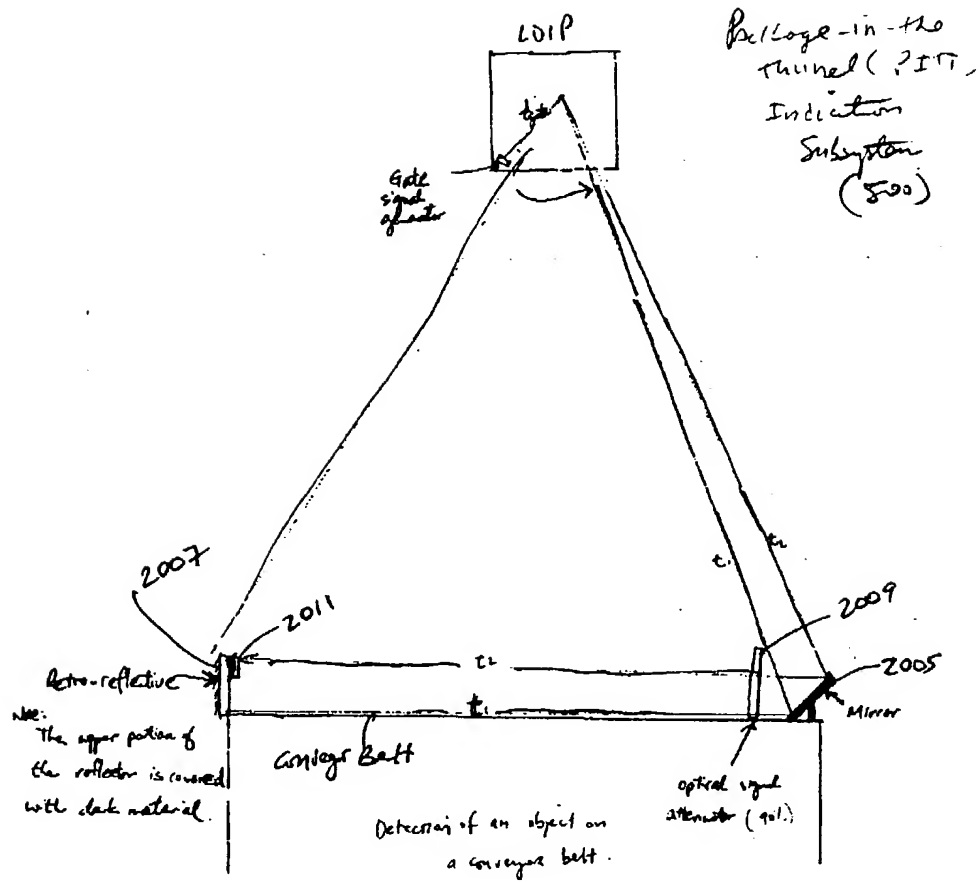 LDIP
Package-in-the
Tunnel (PITT)
Indication
Subsystem
(500)
Gate
signal
generator
t1
t2
2007
2011
2009
2005
Retro-reflective
t2
t1
Mirror
Note:
The upper portion of
the reflector is covered
with dark material.
Conveyor Belt
optical signal
attenuator (90%)
Detection of an object on
a conveyors belt.